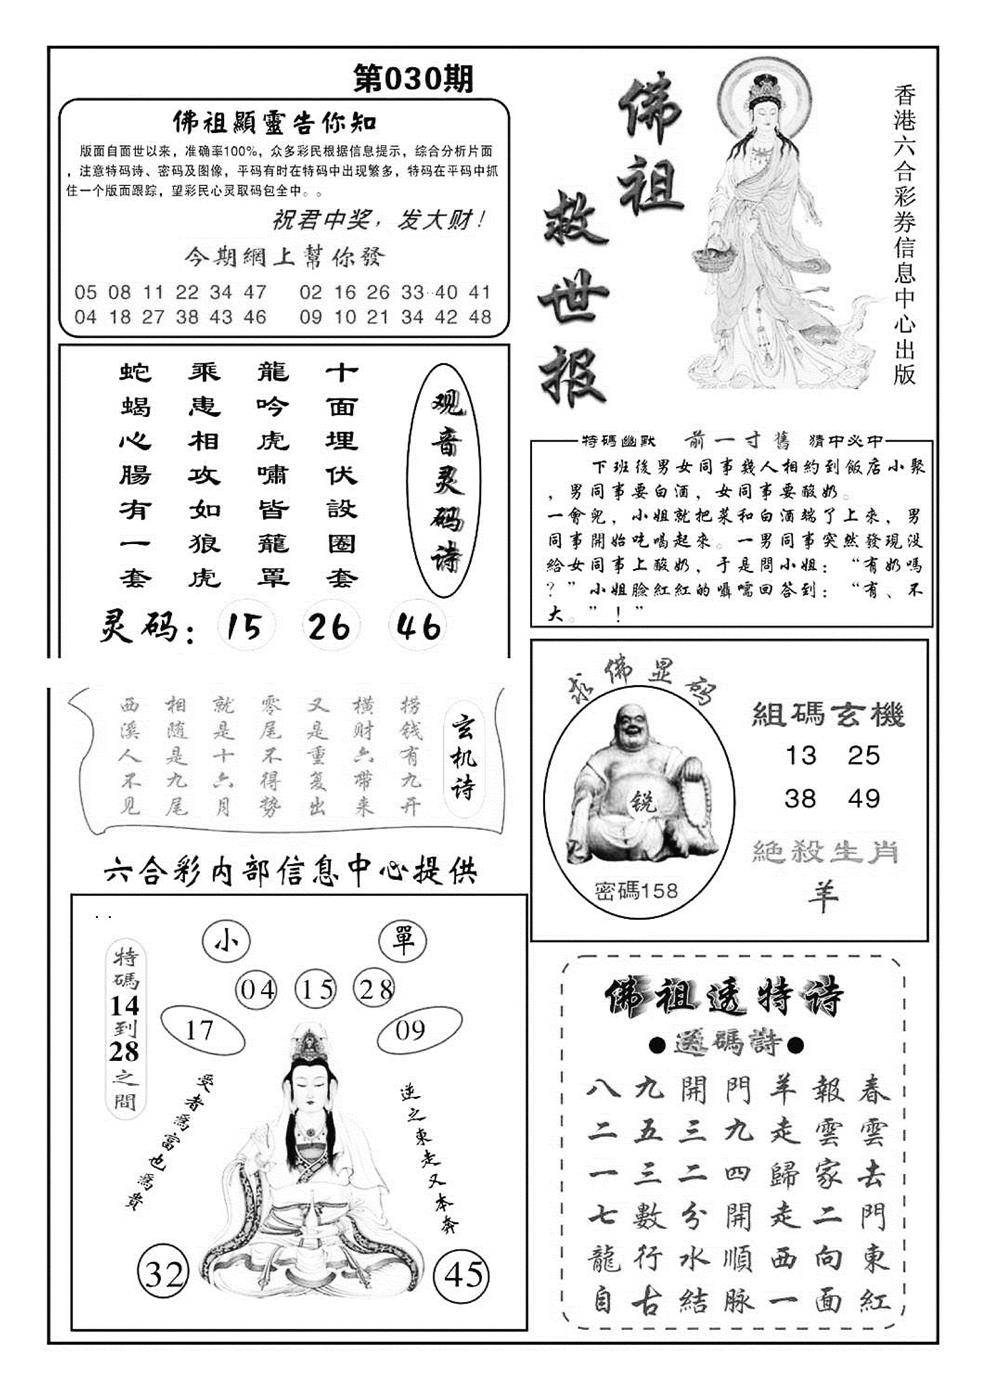 第030期
佛祖顯靈告你知
版面自面世以来，准确率100%，众多彩民根据信息提示，综合分析片面
，注意特码诗、密码及图像，平码有时在特码中出现繁多，特码在平码中抓
住一个版面跟踪，望彩民心灵取码包全中。。
祝君中奖，发大财！
今期網上幫你發
05 08 11 22 34 47 02 16 26 33 40 41
04 18 27 38 43 46 09 10 21 34 42 48
佛祖
救世报
香港六合彩券信息中心出版
观音灵码诗
十面埋伏設圈套
龍吟虎嘯皆籠罩
乘患相攻如狼虎
蛇蝎心腸有一套
灵码：15 26 46
特碼幽默 前一寸舊 猜中必中
下班後男女同事幾人相約到飯店小聚
，男同事要白酒，女同事要酸奶。
一會兒，小姐就把菜和白酒端了上來，男
同事開始吃喝起來。一男同事突然發現沒
給女同事上酸奶，于是問小姐：“有奶嗎
？”小姐臉紅紅的囁嚅回答到：“有、不
大。”！”
玄机诗
捞钱有九开
横财六带来
又是重复出
零尾不得势
就是十六月
相随是九尾
西溪人不见
求佛显码
锐
密碼158
組碼玄機
13 25
38 49
絕殺生肖
羊
六合彩内部信息中心提供
特碼14到28之間
小
單
04 15 28
17
09
受者爲富也爲貴
逆之東走又本奔
32
45
佛祖透特诗
●透碼詩●
八九開門羊報春
二五三九走雲雲
一三二四歸家去
七數分開走二門
龍行水順西向東
自古結脉一面紅